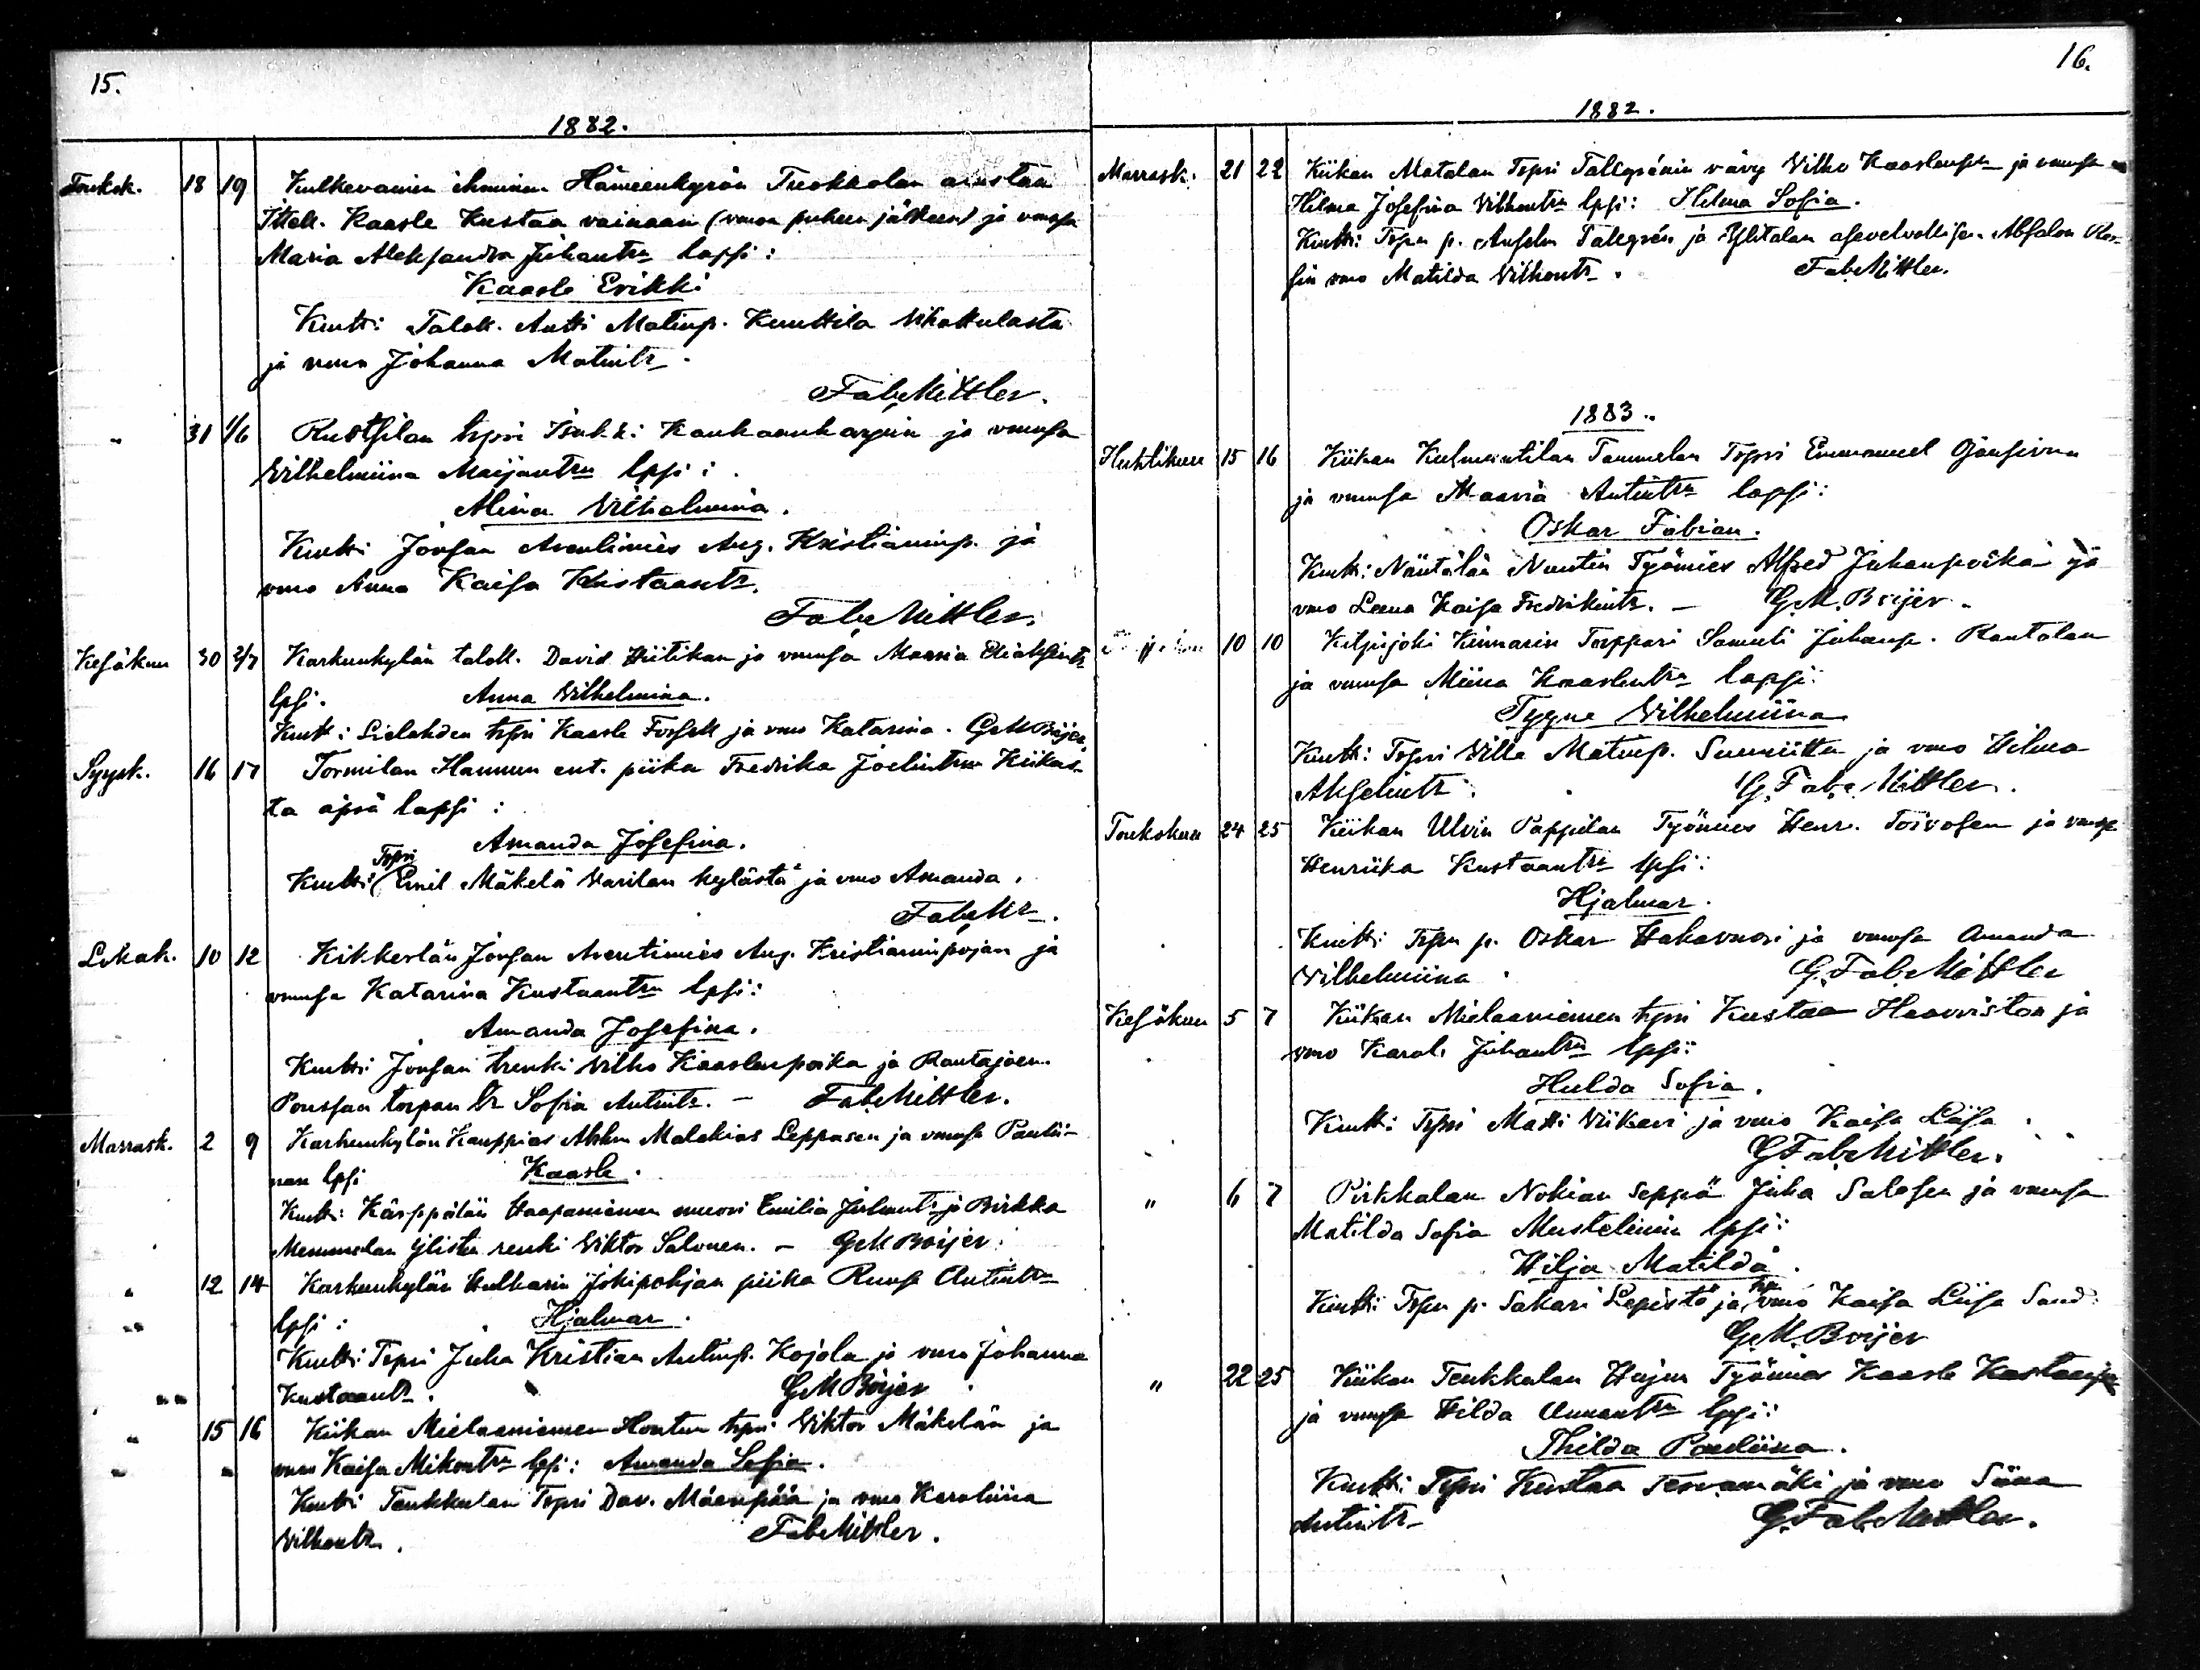 15.
1882.
Toukok. 18 19 Kulkevainen ihminen Hämeenkyrön Tuokkolan
Ittell. Kaarle Kustaa vainaan (vmon puheen jälkeen) ja vmnsa
Maria Aleksandra Juhantrn lapsi:
Kaarle Erikki
Kmtti: Talok. Antti Matinp. Kunttila
ja vmo Johanna Matintr.
Fab. Mittler.
" 31 1/6 trpri
Wilhelmiina Maijantrn lpsi:
Miina Vilhelmina.
Kmtti Jonsan Arentimies Aug. Kristianinp. ja
vmo Anna Kaisa Kustaantr.
Fab. Mittler.
Kesäkuu 30 2/7 Karhunkylän talok. David Hiitikan ja vmnsa Maaria
lpsi. Anna Wilhelmina.
Kmtt: Sielahden trpri Kaarle Forsell ja vmo Katarina. GM Boijer
Syysk. 16 17 Tormilan Hannun ent. piika Fredrika Joelintrn Kiikas-
ta äpärä lapsi:
Amanda Josefina.
Trpri
Kmtti (Emil Mäkelä Varilan kylästä ja vmo Amanda.
Fab. Mr.
Lokak. 10 12 Kikkerlän Jonsan Arentimies Aug. Kristianinpojan ja
vmnsa Katarina Kustaantrn lpsi:
Amanda Josefina.
Kmtti Jonsan trenki Vilho Kaarlenpoika ja Rantajoen
Ponssan torpan tr Sofia Antintr. — Fab. Mittler.
Marrask. 2 9 Karhunkylän Kauppias Malakias Leppäsen ja vmnsa Paulii-
nan lpsi Kaarle.
Kmtti: Kärppälän Haapaniemen muori Emilia Juhantr ja Pirkka
Memmelan Ylistä renki Viktor Salonen. — GM Boijer.
" 12 14 Karhunkylän Hulkarin Jokipohjan piika Ruusa Antintrn
lpsi: Hjalmar.
Kmtti: Trpri Juha Kristian Antinp. Kojola ja vmo Johanna
Kustaantr. GM Boijer
" 15 16 Kiikan Mielaaniemen Hontun trpri Viktor Mäkelän ja
vmo Kaisa Mikontrn lpsi: Amanda Sofia.
Kmtti Teukkulan Trpri Dav. Mäenpää ja vmo Karoliina
Vilhontr. Fab. Mittler.
16.
1882.
Marrask. 21 22 Kiikan Matalan Trpri Tallgrénin vävy Vilho Kaarlenpn ja vmnsa
Hilma Josefina Vilhontrn lpsi: Hilma Sofia.
Kmtti: Trpn p. Anselm Tallgrén ja Ylitalon asevelvollisen Absalon Ros-
sin vmo Matilda Vilhontr. Fab. Mittler.
1883.
Huhtikuu 15 16 Kiikan Kulmantilan Tammelan Trpri Emmanuel Ojansivun
ja vmnsa Maaria Antintrn lapsi:
Oskar Fabian.
Kmtti: Näntälän Nuutin Työmies Alfred Juhanpoika ja
vmo Leena Kaisa Fredrikintr. — G.M. Boijer.
10 10 Kilpijoki Kinnarin Torppari Samuli Juhanp. Rantalan
ja vmnsa Miina Kaarlentrn lapsi:
Tyyne Wilhelmiina
Kmtti: Trpri Ville Matinp. Sunniitta ja vmo Hilma
Akselintr. G. Fab. Mittler.
Toukokuu 24 25 Kiikan Ulvin Pappilan Työmies Henr. Toivosen ja vmnsa
Henriika Kustaantrn lpsi:
Hjalmar.
Kmtti: Trpn p. Oskar Hakavuori ja vmnsa Amanda
Wilhelmiina G. Fab. Mittler
Kesäkuu 5 7 Kiikan Mielaaniemen trpri Kustaa Haaviston ja
vmo Karol. Juhantrn lpsi:
Hulda Sofia.
Kmtti: Trpri Matti Viikari ja vmo Kaisa Liisa
G Fab. Mittler.
" 6 7 Pirkkalan Nokian Seppä Juha Salosen ja vmnsa
Matilda Sofia Mustelinin lpsi:
Hilja Matilda.
Kmtti: Trpn p. Sakari Lepistö ja vmo Kaisa Liisa Sand.
G.M. Boijer
" 22 25 Kiikan Teukkulan Hujun Työmies Kaarle Kustaanpn
ja vmnsa Hilda Annantrn lpsi:
Thilda Pauliina.
Kmtti: Trpri Kustaa Tervamäki ja vmo Siina
Antintr. G. Fab. Mittler.